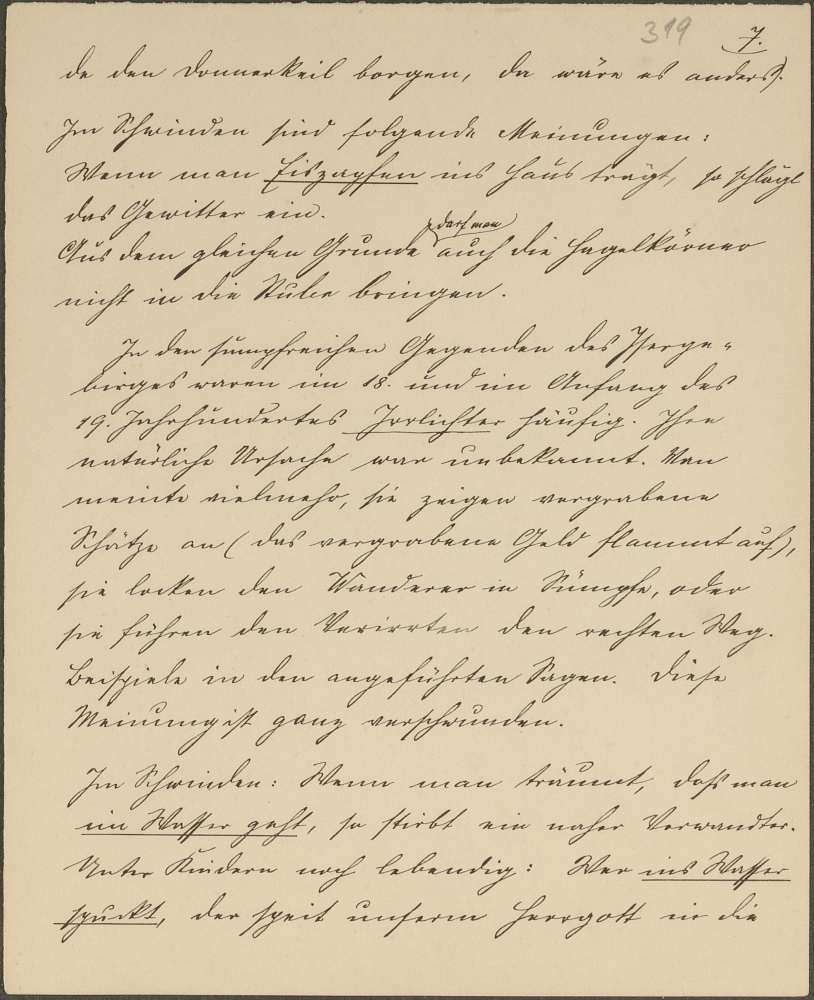 319 7.
de den Donnerkeil borgen, da wäre es anders).
Im Schwinden sind folgende Meinungen:
Wenn man Eiszapfen ins Haus trägt, so schlägt
das Gewitter ein.
darf man
Aus dem gleichen Grunde auch die Hagelkörner
nicht in die Stube bringen.
In den sumpfreichen Gegenden des Iserge-
birges waren im 18. und im Anfang des
19. Jahrhundertes Irrlichter häufig. Ihre
natürliche Ursache war unbekannt. Man
meinte vielmehr, sie zeigen vergrabene
Schätze an (das vergrabene Geld flammt auf),
sie locken den Wanderer in Sümpfe, oder
sie führen den Verirrten den rechten Weg.
Beispiele in den angeführten Sagen. Diese
Meinung ist ganz verschwunden.
Im Schwinden: Wenn man träumt, daß man
im Wasser geht, so stirbt ein naher Verwandter.
Unter Kindern noch lebendig: Wer ins Wasser
spuckt, der speit unserm Herrgott in die